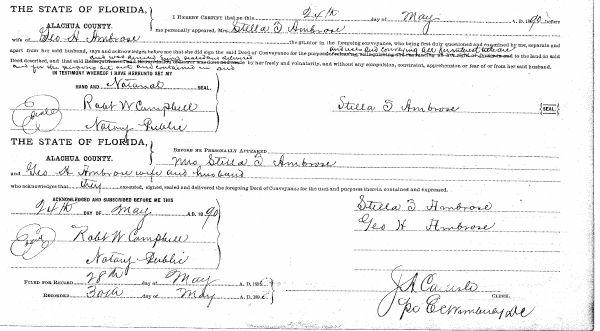 THE STATE OF FLORIDA,
ALACHUA COUNTY.
I HEREBY CERTIFY that on this 24th day of May A. D. 1890, before
me personally appeared, Mrs. Stella T Ambrose
wife of Geo H Ambrose the grantor in the foregoing conveyance, who being first duly questioned and examined by me, separate and
apart from her said husband, says and acknowledges before me that she did sign the said Deed of Conveyance for the purpose and conveying all to the land in said
Deed described, and that said delivered by her freely and voluntarily, and without any compulsion, constraint, apprehension or fear of or from her said husband.
and for the purposes set out and contained in said
IN TESTIMONY WHEREOF I HAVE HEREUNTO SET MY
HAND AND Notarial SEAL.
Seal Robt W Campbell
Notary Public
Stella T Ambrose {SEAL}
THE STATE OF FLORIDA,
ALACHUA COUNTY.
BEFORE ME PERSONALLY APPEARED
Mrs Stella T Ambrose
and Geo H Ambrose wife and husband
who acknowledges that they executed, signed, sealed and delivered the foregoing Deed of Conveyance for the uses and purposes therein contained and expressed.
ACKNOWLEDGED AND SUBSCRIBED BEFORE ME THIS
24th DAY OF May A. D. 1890
Seal Robt W Campbell
Notary Public
Stella T Ambrose
Geo H Ambrose
FILED FOR RECORD 28th day of May A. D. 188
RECORDED 30th day of May A. D. 188
J A Carlisle CLERK.
DC